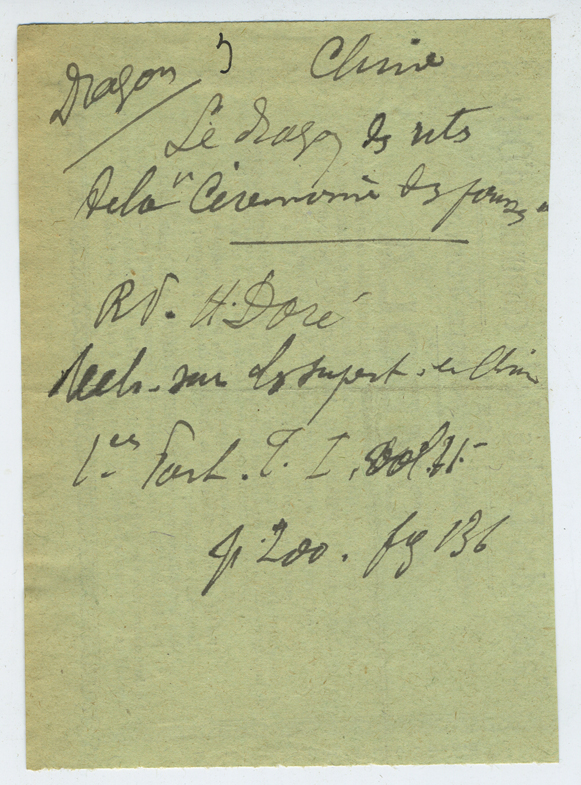 Dragon 5 Chine
Le dragon des rits
de la "Cérémonie des
R.P. H. Doré
Rech. sur les superst. en Chine
1ère Part. T. I, vol. II.
p. 200. fig 136